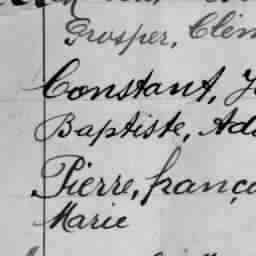 Prosper, Clém
Constant, J
Baptiste, Ad
Pierre, franço
Marie